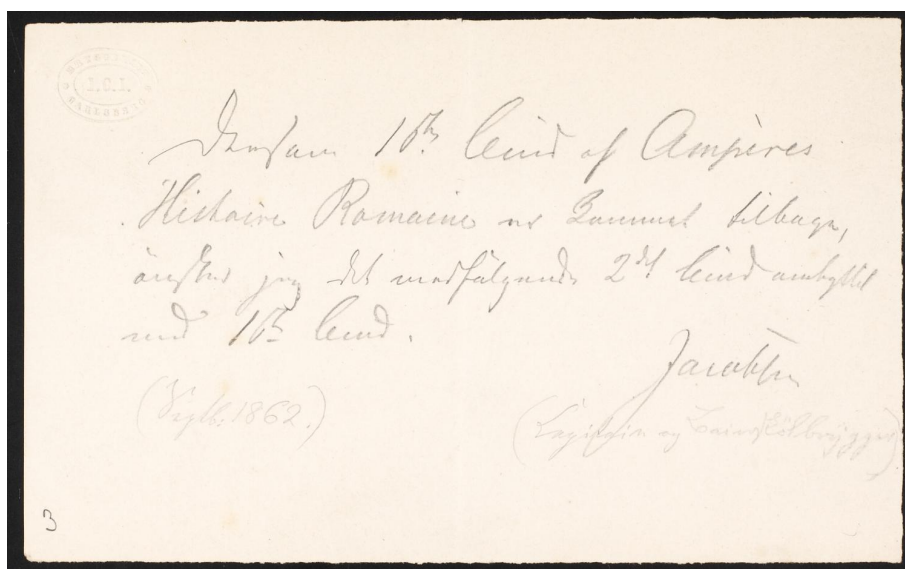 BRYGGERIET
J.C.J.
CARLSBERG
Dersom 1ste bind af Ampères
Histoire Romaine er kommet tilbage,
önsker jeg det medfølgende 2det bind ombyttet
med 1ste bind.
Jacobsen
(Septbr. 1862.)
(Captain og Baierskölbrygger)
3